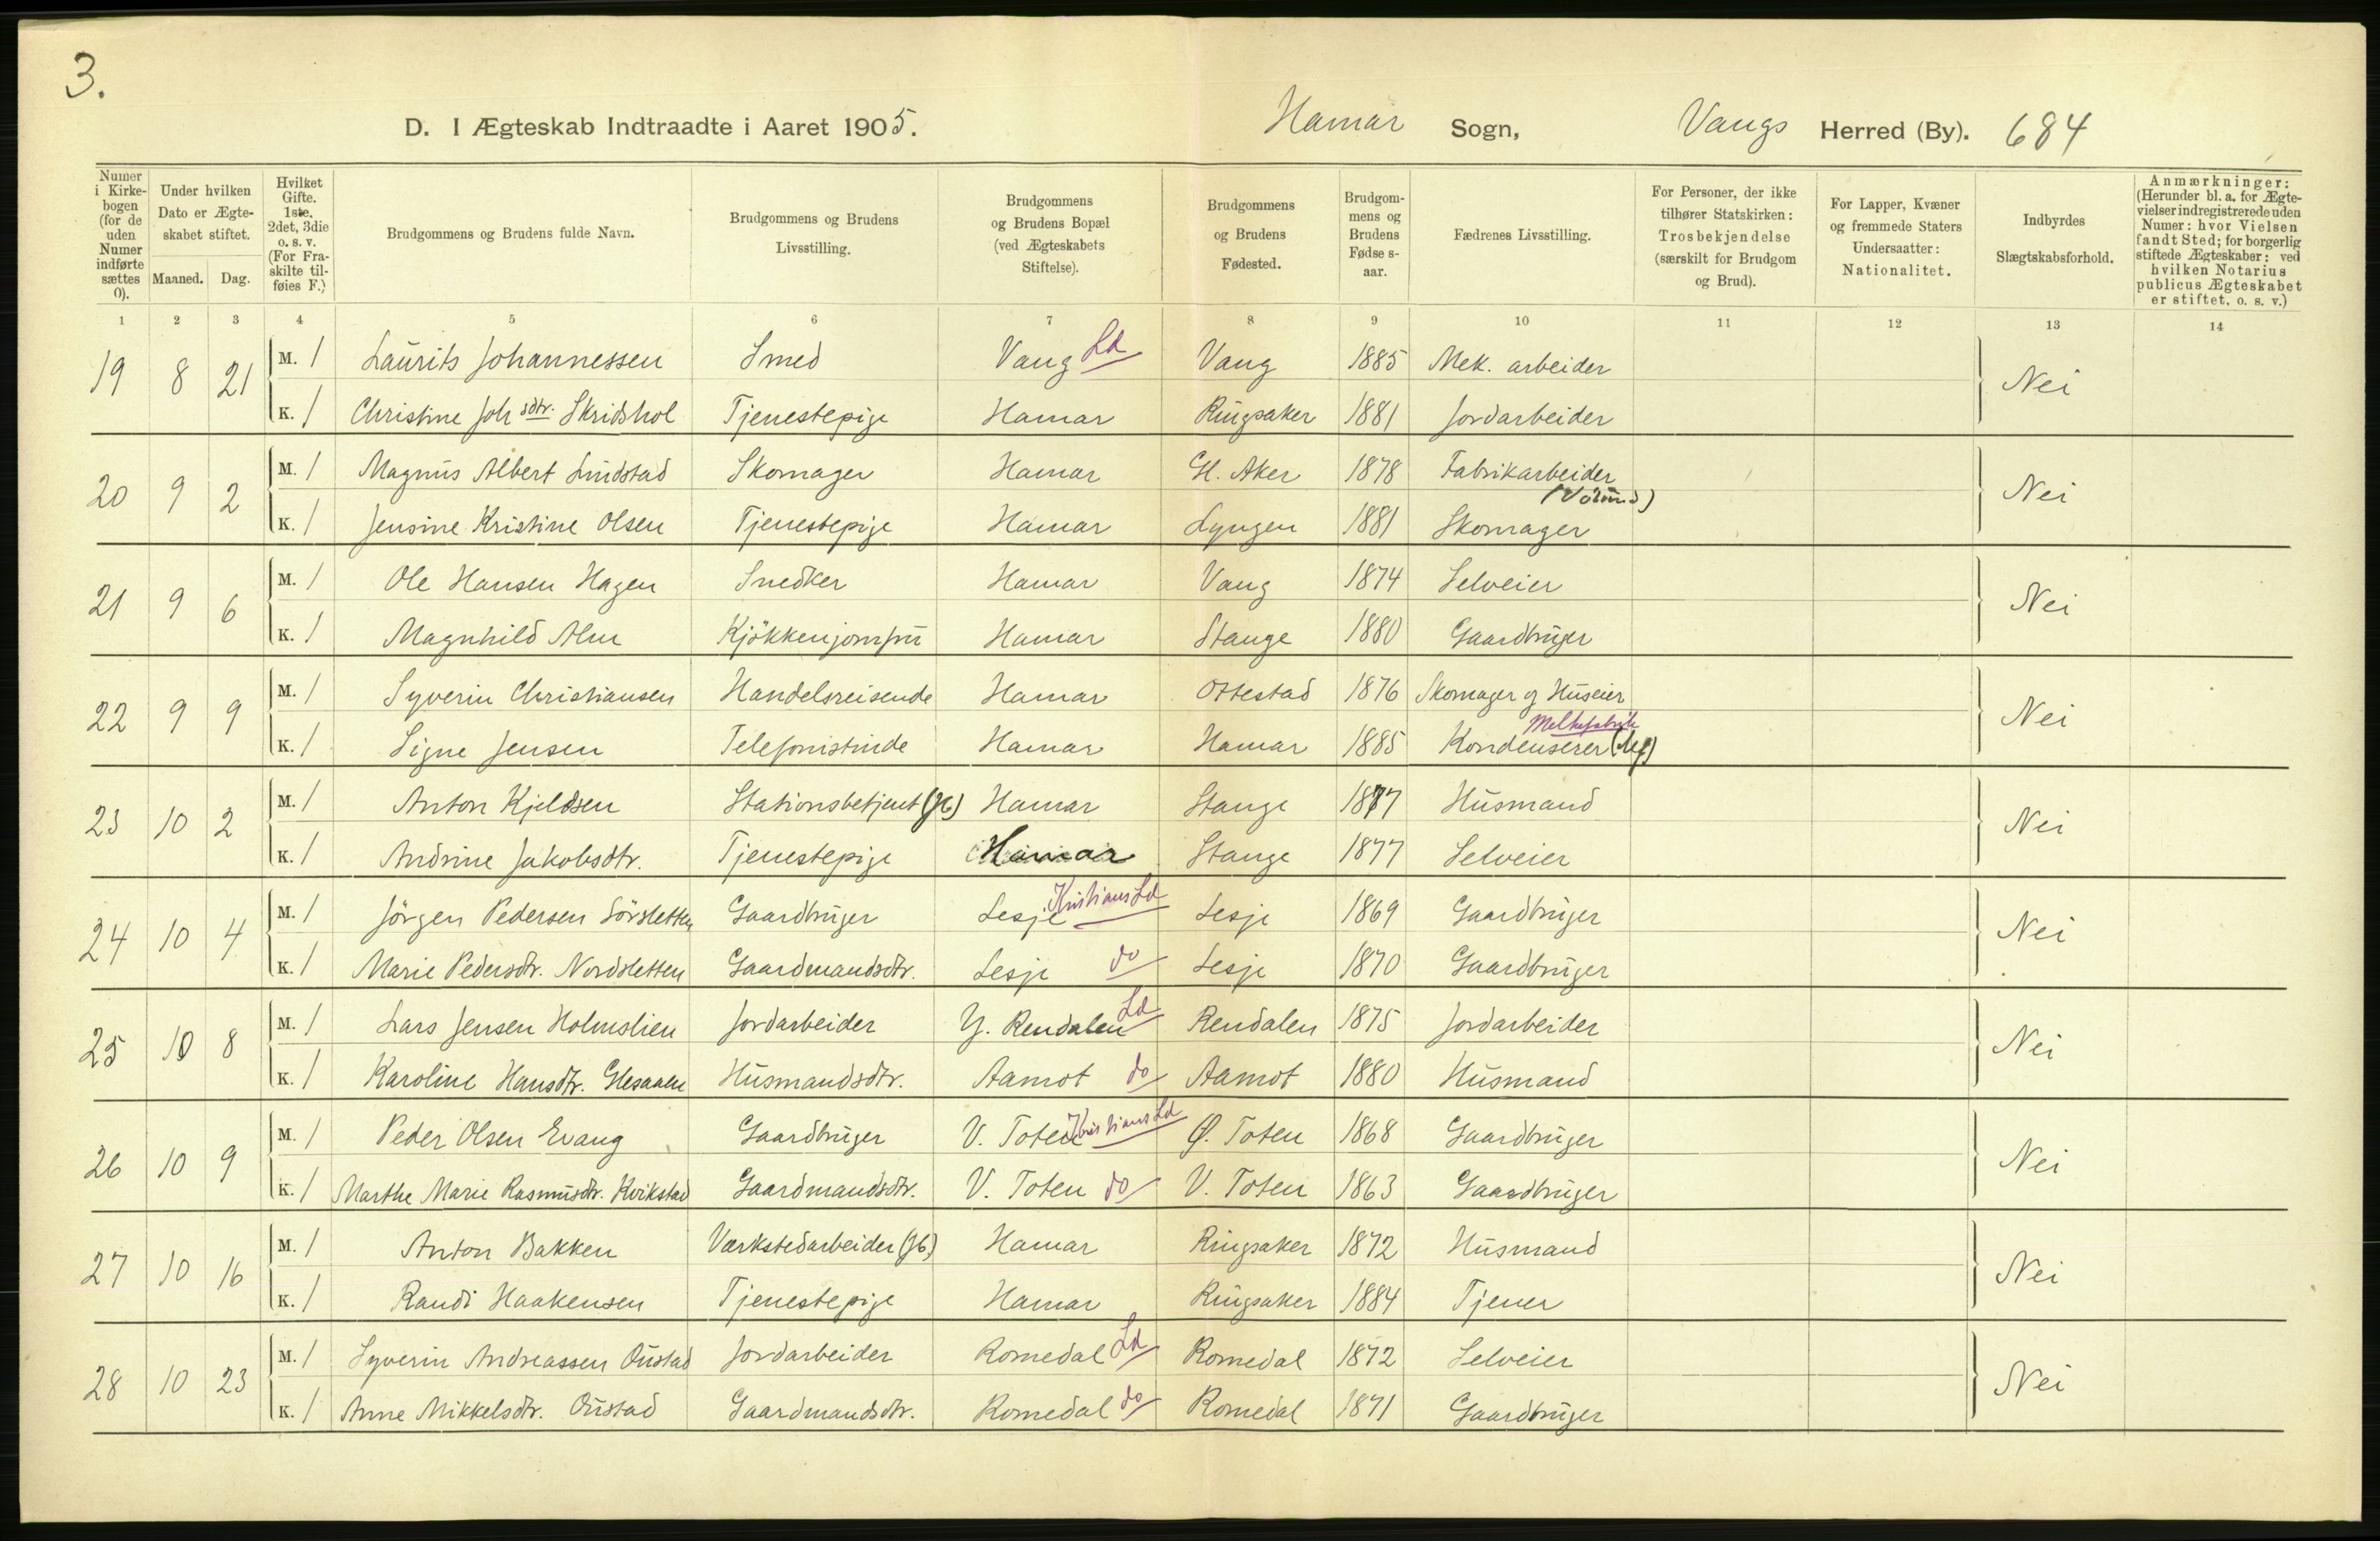 3.
D. I Ægteskab Indtraadte i Aaret 1905. Hamar Sogn, Vangs Herred (By). 684
Numer i Kirkebogen (for de uden Numer indførte sættes 0). Under hvilken Dato er Ægteskabet stiftet. Maaned. Dag. Hvilket Gifte. 1ste, 2det, 3die o. s. v. (For Fraskilte tilføies F.) Brudgommens og Brudens fulde Navn. Brudgommens og Brudens Livsstilling. Brudgommens og Brudens Bopæl (ved Ægteskabets Stiftelse). Brudgommens og Brudens Fødested. Brudgommens og Brudens Fødselsaar. Fædrenes Livsstilling. For Personer, der ikke tilhører Statskirken: Trosbekjendelse (særskilt for Brudgom og Brud). For Lapper, Kvæner og fremmede Staters Undersaatter: Nationalitet. Indbyrdes Slægtskabsforhold. Anmærkninger: (Herunder bl. a. for Ægtevielser indregistrerede uden Numer: hvor Vielsen fandt Sted; for borgerlig stiftede Ægteskaber: ved hvilken Notarius publicus Ægteskabet er stiftet, o. s. v.)
1 2 3 4 5 6 7 8 9 10 11 12 13 14
19 8 21 M. 1 Laurits Johannessen Smed Vang Ld Vang 1885 Mek. arbeider Nei
K. 1 Christine Joh sdtr. Skridshol Tjenestepige Hamar Ringsaker 1881 Jordarbeider
20 9 2 M. 1 Magnus Albert Lundstad Skomager Hamar Gl. Aker 1878 Fabrikarbeider Nei
K. 1 Jensine Kristine Olsen Tjenestepige Hamar Lyngen 1881 Skomager
21 9 6 M. 1 Ole Hansen Hagen Snedker Hamar Vang 1874 Selveier Nei
K. 1 Magnhild Alm Kjökkenjomfru Hamar Stange 1880 Gaardbruger
22 9 9 M. 1 Syverin Christiansen Handelsreisende Hamar Ottestad 1876 Skomager og Huseier Nei
Melkefabrik
K. 1 Signe Jensen Telefonistinde Hamar Hamar 1885 Kondenserer
23 10 2 M. 1 Anton Kjeldsen Stationsbetjent (Jb) Hamar Stange 1877 Husmand Nei
K. 1 Andrine Jakobsdtr. Tjenestepige Hamar Stange 1877 Selveier
24 10 4 M. 1 Jörgen Pedersen Sörsletten Gaardbruger Lesje Kristians Ld Lesje 1869 Gaardbruger Nei
K. 1 Marie Pedersdtr. Nordsletten Gaardmandsdtr. Lesje do Lesje 1870 Gaardbruger
25 10 8 M. 1 Lars Jensen Holmslien Jordarbeider Y. Rendalen Ld Rendalen 1875 Jordarbeider Nei
K. 1 Karoline Hansdtr. Glesaaen Husmandsdtr. Aamot do Aamot 1880 Husmand
26 10 9 M. 1 Peder Olsen Evang Gaardbruger V. Toten Kristians Ld Ø. Toten 1868 Gaardbruger Nei
K. 1 Marthe Marie Rasmusdtr. Kvikstad Gaardmandsdtr. V. Toten do V. Toten 1863 Gaardbruger
27 10 16 M. 1 Anton Bakken Værkstedarbeider (Jb) Hamar Ringsaker 1872 Husmand Nei
K. 1 Randi Haakensen Tjenestepige Hamar Ringsaker 1884 Tjener
28 10 23 M. 1 Syverin Andreassen Oustad Jordarbeider Romedal Ld Romedal 1872 Selveier Nei
K. 1 Anne Mikkelsdtr. Oustad Gaardmandsdtr. Romedal do Romedal 1871 Gaardbruger